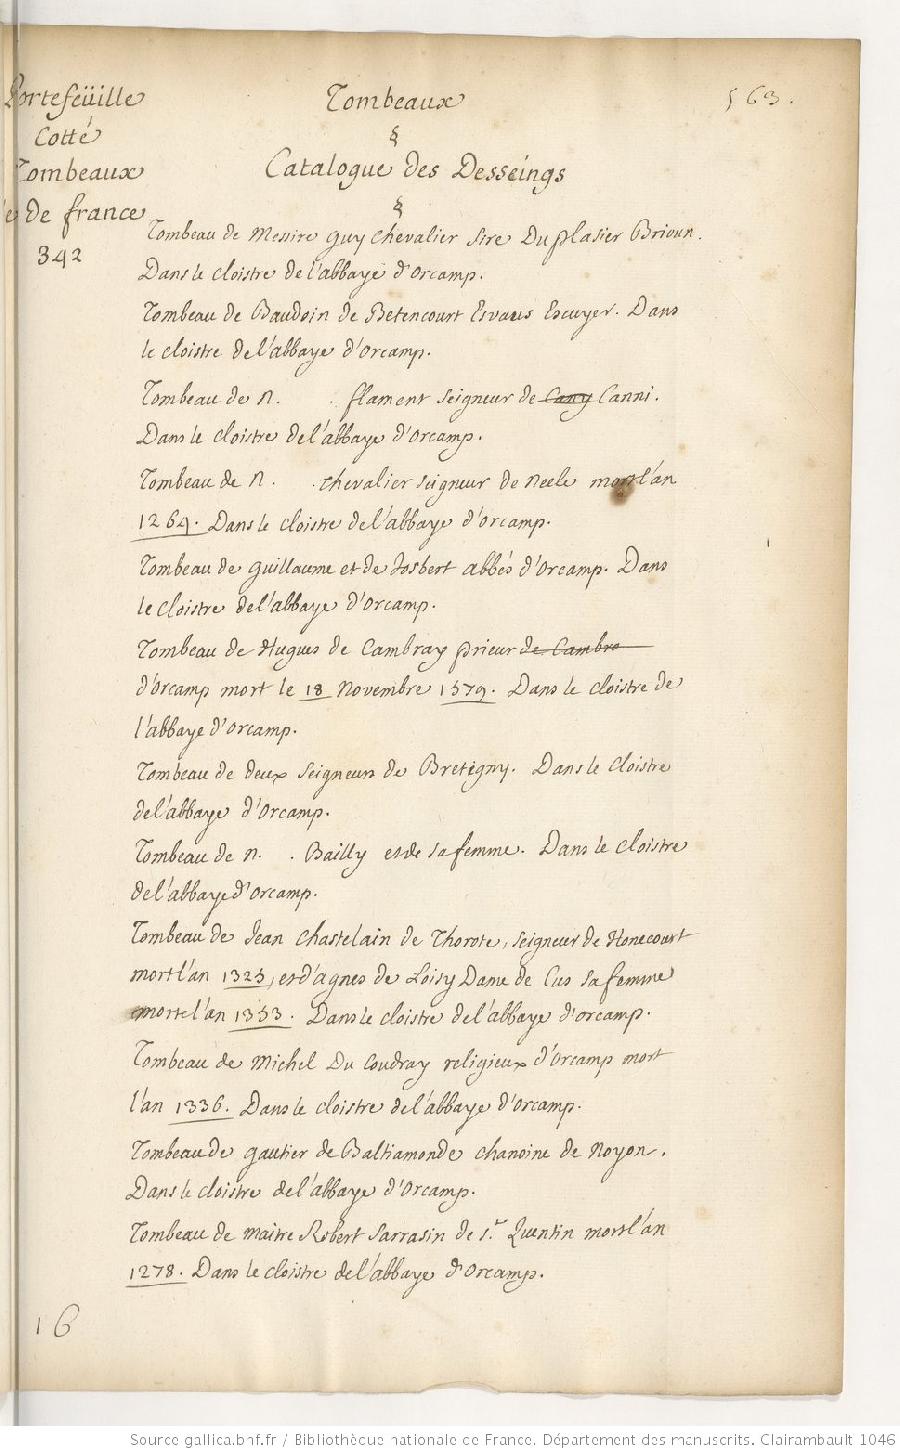 Portefeüille
Cotté
Tombeaux
de france
342
Tombeaux
§
Catalogue des Desseings
§
563.
Tombeau de Messire guy chevalier sire Du plasier Brioun.
Dans le cloistre de l'abbaye d'orcamp.
Tombeau de Baudoin de Betencourt Esvaus Escuyer. Dans
le cloistre de l'abbaye d'orcamp.
Tombeau de N. . flament seigneur de Cany Canni.
Dans le cloistre de l'abbaye d'orcamp.
Tombeau de N. . chevalier seigneur de Neele mort l'an
1264. Dans le cloistre de l'abbaye d'orcamp.
Tombeau de guillaume et de Josbert abbés d'orcamp. Dans
le cloistre de l'abbaye d'orcamp.
Tombeau de Hugues de Cambray prieur de Cambre
d'orcamp mort le 18 Novembre 1379. Dans le cloistre de
l'abbaye d'orcamp.
Tombeau de deux seigneurs de Bretigny. Dans le cloistre
de l'abbaye d'orcamp.
Tombeau de N. . Bailly et de sa femme. Dans le cloistre
de l'abbaye d'orcamp.
Tombeau de Jean chastelain de Thorote, seigneur de Honecourt
mort l'an 1323, et d'agnes de Loisy Dame de Cus sa femme
morte l'an 1333. Dans le cloistre de l'abbaye d'orcamp.
Tombeau de Michel Du Coudray religieux d'orcamp mort
l'an 1336. Dans le cloistre de l'abbaye d'orcamp.
Tombeau de gautier de Baltiamonde chanoine de Noyon.
Dans le cloistre de l'abbaye d'orcamp.
Tombeau de maitre Robert sarrasin de st. Quentin mort l'an
1278. Dans le cloistre de l'abbaye d'orcamp.
16
Source gallica.bnf.fr / Bibliothèque nationale de France. Département des manuscrits. Clairambault 1046